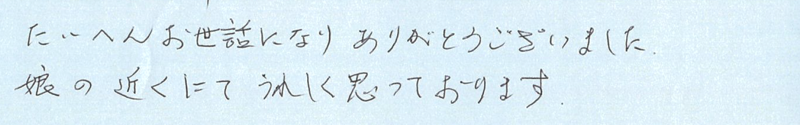 たいへんお世話になり ありがとうございました.
娘の近くにて うれしく思っております.